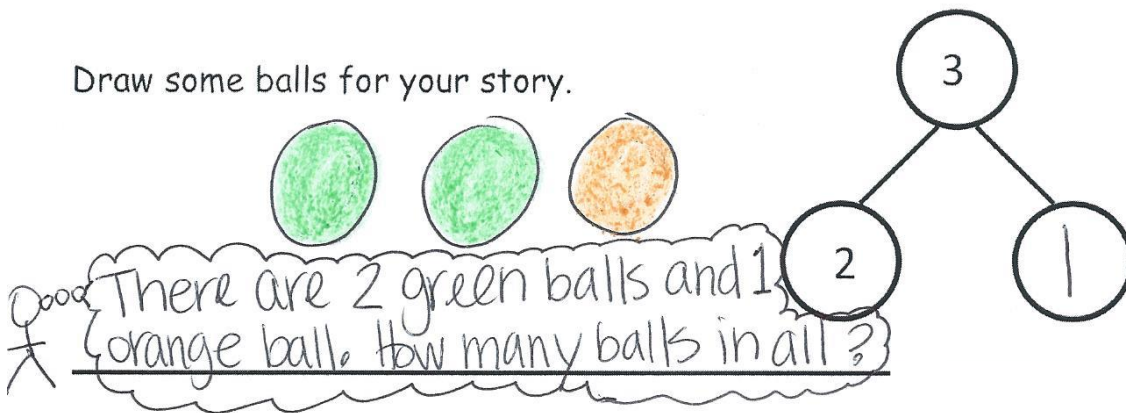 Draw some balls for your story.
3
2
1
There are 2 green balls and 1
orange ball. How many balls in all?